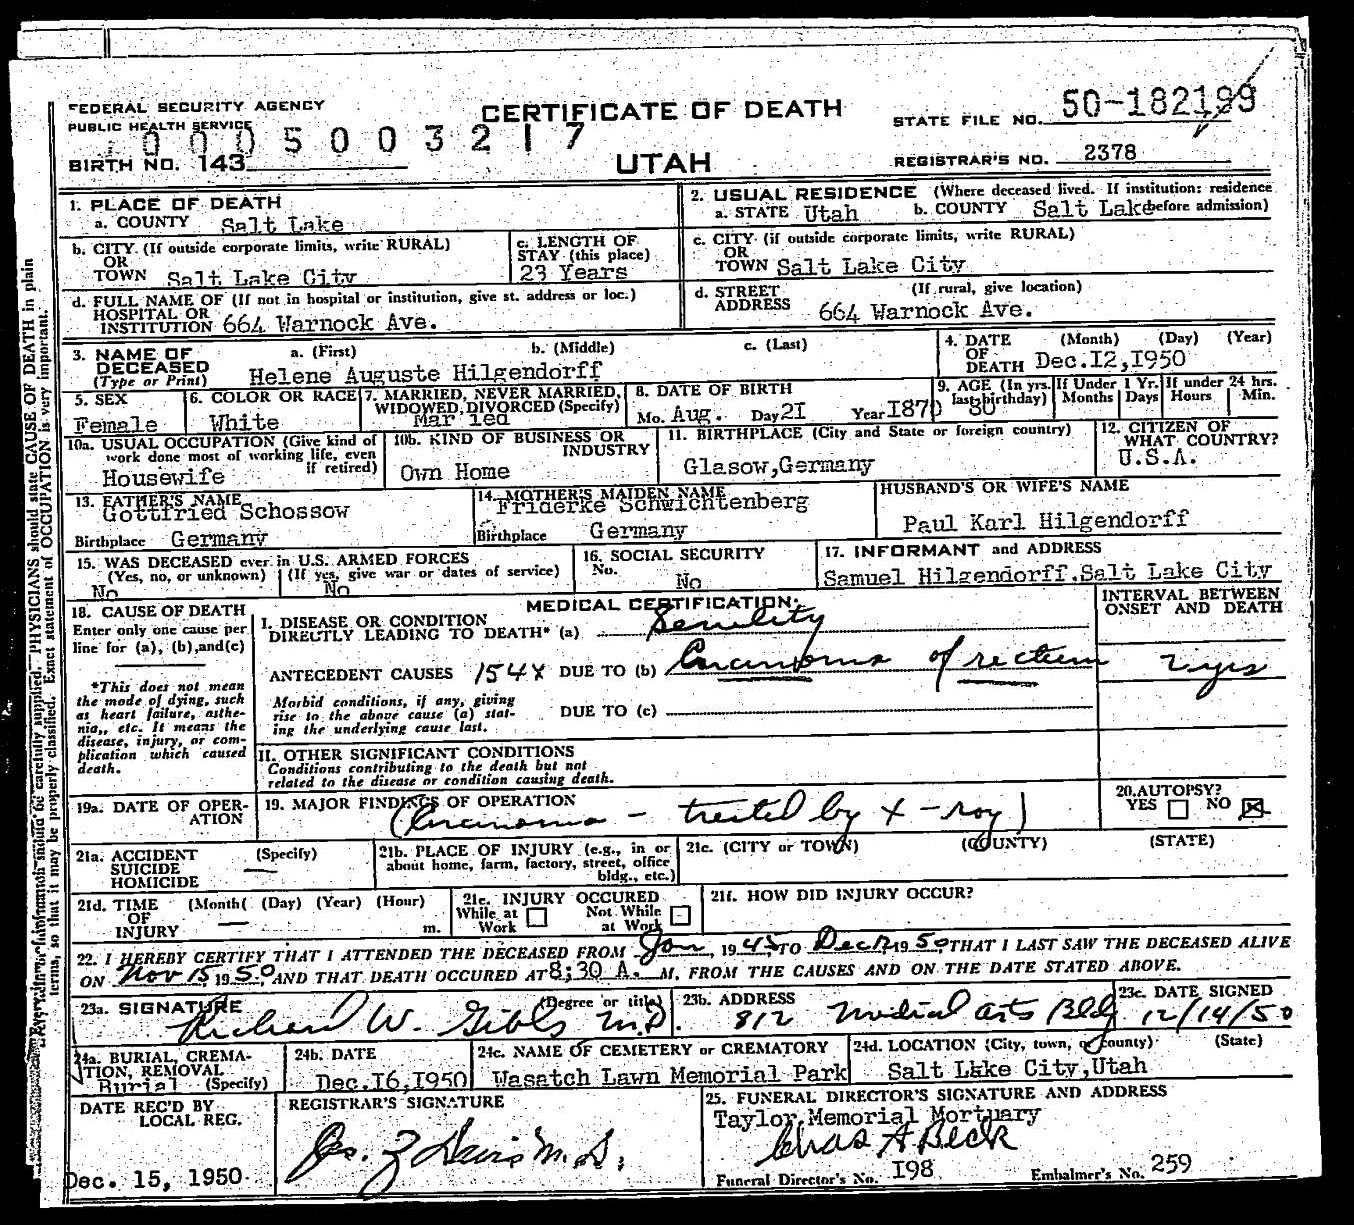 FEDERAL SECURITY AGENCY
PUBLIC HEALTH SERVICE
CERTIFICATE OF DEATH
STATE FILE NO. 50-182199
0005003217
BIRTH NO. 143
UTAH
REGISTRAR'S NO. 2378
1. PLACE OF DEATH
a. COUNTY Salt Lake
2. USUAL RESIDENCE (Where deceased lived. If institution: residence before admission)
a. STATE Utah b. COUNTY Salt Lake
b. CITY (If outside corporate limits, write RURAL)
OR
TOWN Salt Lake City
c. LENGTH OF
STAY (this place)
23 Years
c. CITY (if outside corporate limits, write RURAL)
OR
TOWN Salt Lake City
d. FULL NAME OF (If not in hospital or institution, give st. address or loc.)
HOSPITAL OR
INSTITUTION 664 Warnock Ave.
d. STREET (If rural, give location)
ADDRESS 664 Warnock Ave.
3. NAME OF a. (First) b. (Middle) c. (Last)
DECEASED
(Type or Print) Helene Auguste Hilgendorff
4. DATE (Month) (Day) (Year)
OF
DEATH Dec.I2,I950
5. SEX
Female
6. COLOR OR RACE
White
7. MARRIED, NEVER MARRIED,
WIDOWED, DIVORCED (Specify)
Mar ied
8. DATE OF BIRTH
Mo. Aug. Day 2I Year I870
9. AGE (In yrs.
last birthday) 80
If Under 1 Yr.
Months Days
If under 24 hrs.
Hours Min.
10a. USUAL OCCUPATION (Give kind of
work done most of working life, even
if retired)
Housewife
10b. KIND OF BUSINESS OR
INDUSTRY
Own Home
11. BIRTHPLACE (City and State or foreign country)
Glasow,Germany
12. CITIZEN OF
WHAT COUNTRY?
U.S.A.
13. FATHER'S NAME
Gottfried Schossow
Birthplace Germany
14. MOTHER'S MAIDEN NAME
Friderke Schwichtenberg
Birthplace Germany
HUSBAND'S OR WIFE'S NAME
Paul Karl Hilgendorff
15. WAS DECEASED ever in U.S. ARMED FORCES
(Yes, no, or unknown) (If yes, give war or dates of service)
No No
16. SOCIAL SECURITY
No.
No
17. INFORMANT and ADDRESS
Samuel Hilgendorff.Salt Lake City
18. CAUSE OF DEATH
Enter only one cause per
line for (a), (b),and(c)
*This does not mean
the mode of dying, such
as heart failure, asthe-
nia,, etc. It means the
disease, injury, or com-
plication which caused
death.
MEDICAL CERTIFICATION
INTERVAL BETWEEN
ONSET AND DEATH
I. DISEASE OR CONDITION
DIRECTLY LEADING TO DEATH* (a) Senility
ANTECEDENT CAUSES 154X DUE TO (b) Carcinoma of rectum 2 yrs
Morbid conditions, if any, giving
rise to the above cause (a) stat-
ing the underlying cause last.
DUE TO (c)
II. OTHER SIGNIFICANT CONDITIONS
Conditions contributing to the death but not
related to the disease or condition causing death.
19a. DATE OF OPER-
ATION
19. MAJOR FINDINGS OF OPERATION
(Carcinoma - treated by X-ray)
20.AUTOPSY?
YES NO
21a. ACCIDENT (Specify)
SUICIDE
HOMICIDE
21b. PLACE OF INJURY (e.g., in or
about home, farm, factory, street, office
bldg., etc.)
21c. (CITY or TOWN) (COUNTY) (STATE)
21d. TIME (Month( (Day) (Year) (Hour)
OF
INJURY m.
21e. INJURY OCCURED
While at Work Not While at Work
21f. HOW DID INJURY OCCUR?
22. I HEREBY CERTIFY THAT I ATTENDED THE DECEASED FROM Jan, 1945, TO Dec 12 1950, THAT I LAST SAW THE DECEASED ALIVE
ON Nov 15, 1950, AND THAT DEATH OCCURED AT 8;30 A. M. FROM THE CAUSES AND ON THE DATE STATED ABOVE.
23a. SIGNATURE (Degree or title)
Richard W. Gibbs M.D.
23b. ADDRESS
812 Medical Arts Bldg
23c. DATE SIGNED
12/14/50
24a. BURIAL, CREMA-
TION, REMOVAL
Burial (Specify)
24b. DATE
Dec.I6,I950
24c. NAME OF CEMETERY or CREMATORY
Wasatch Lawn Memorial Park
24d. LOCATION (City, town, or county) (State)
Salt Lake City,Utah
DATE REC'D BY
LOCAL REG.
Dec. 15, 1950
REGISTRAR'S SIGNATURE
Jas. Z Davis M.D.
25. FUNERAL DIRECTOR'S SIGNATURE AND ADDRESS
Taylor Memorial Mortuary
Chas A Beck
Funeral Director's No. I98 Embalmer's No. 259
should state CAUSE OF DEATH in plain
Exact statement of OCCUPATION is very important.